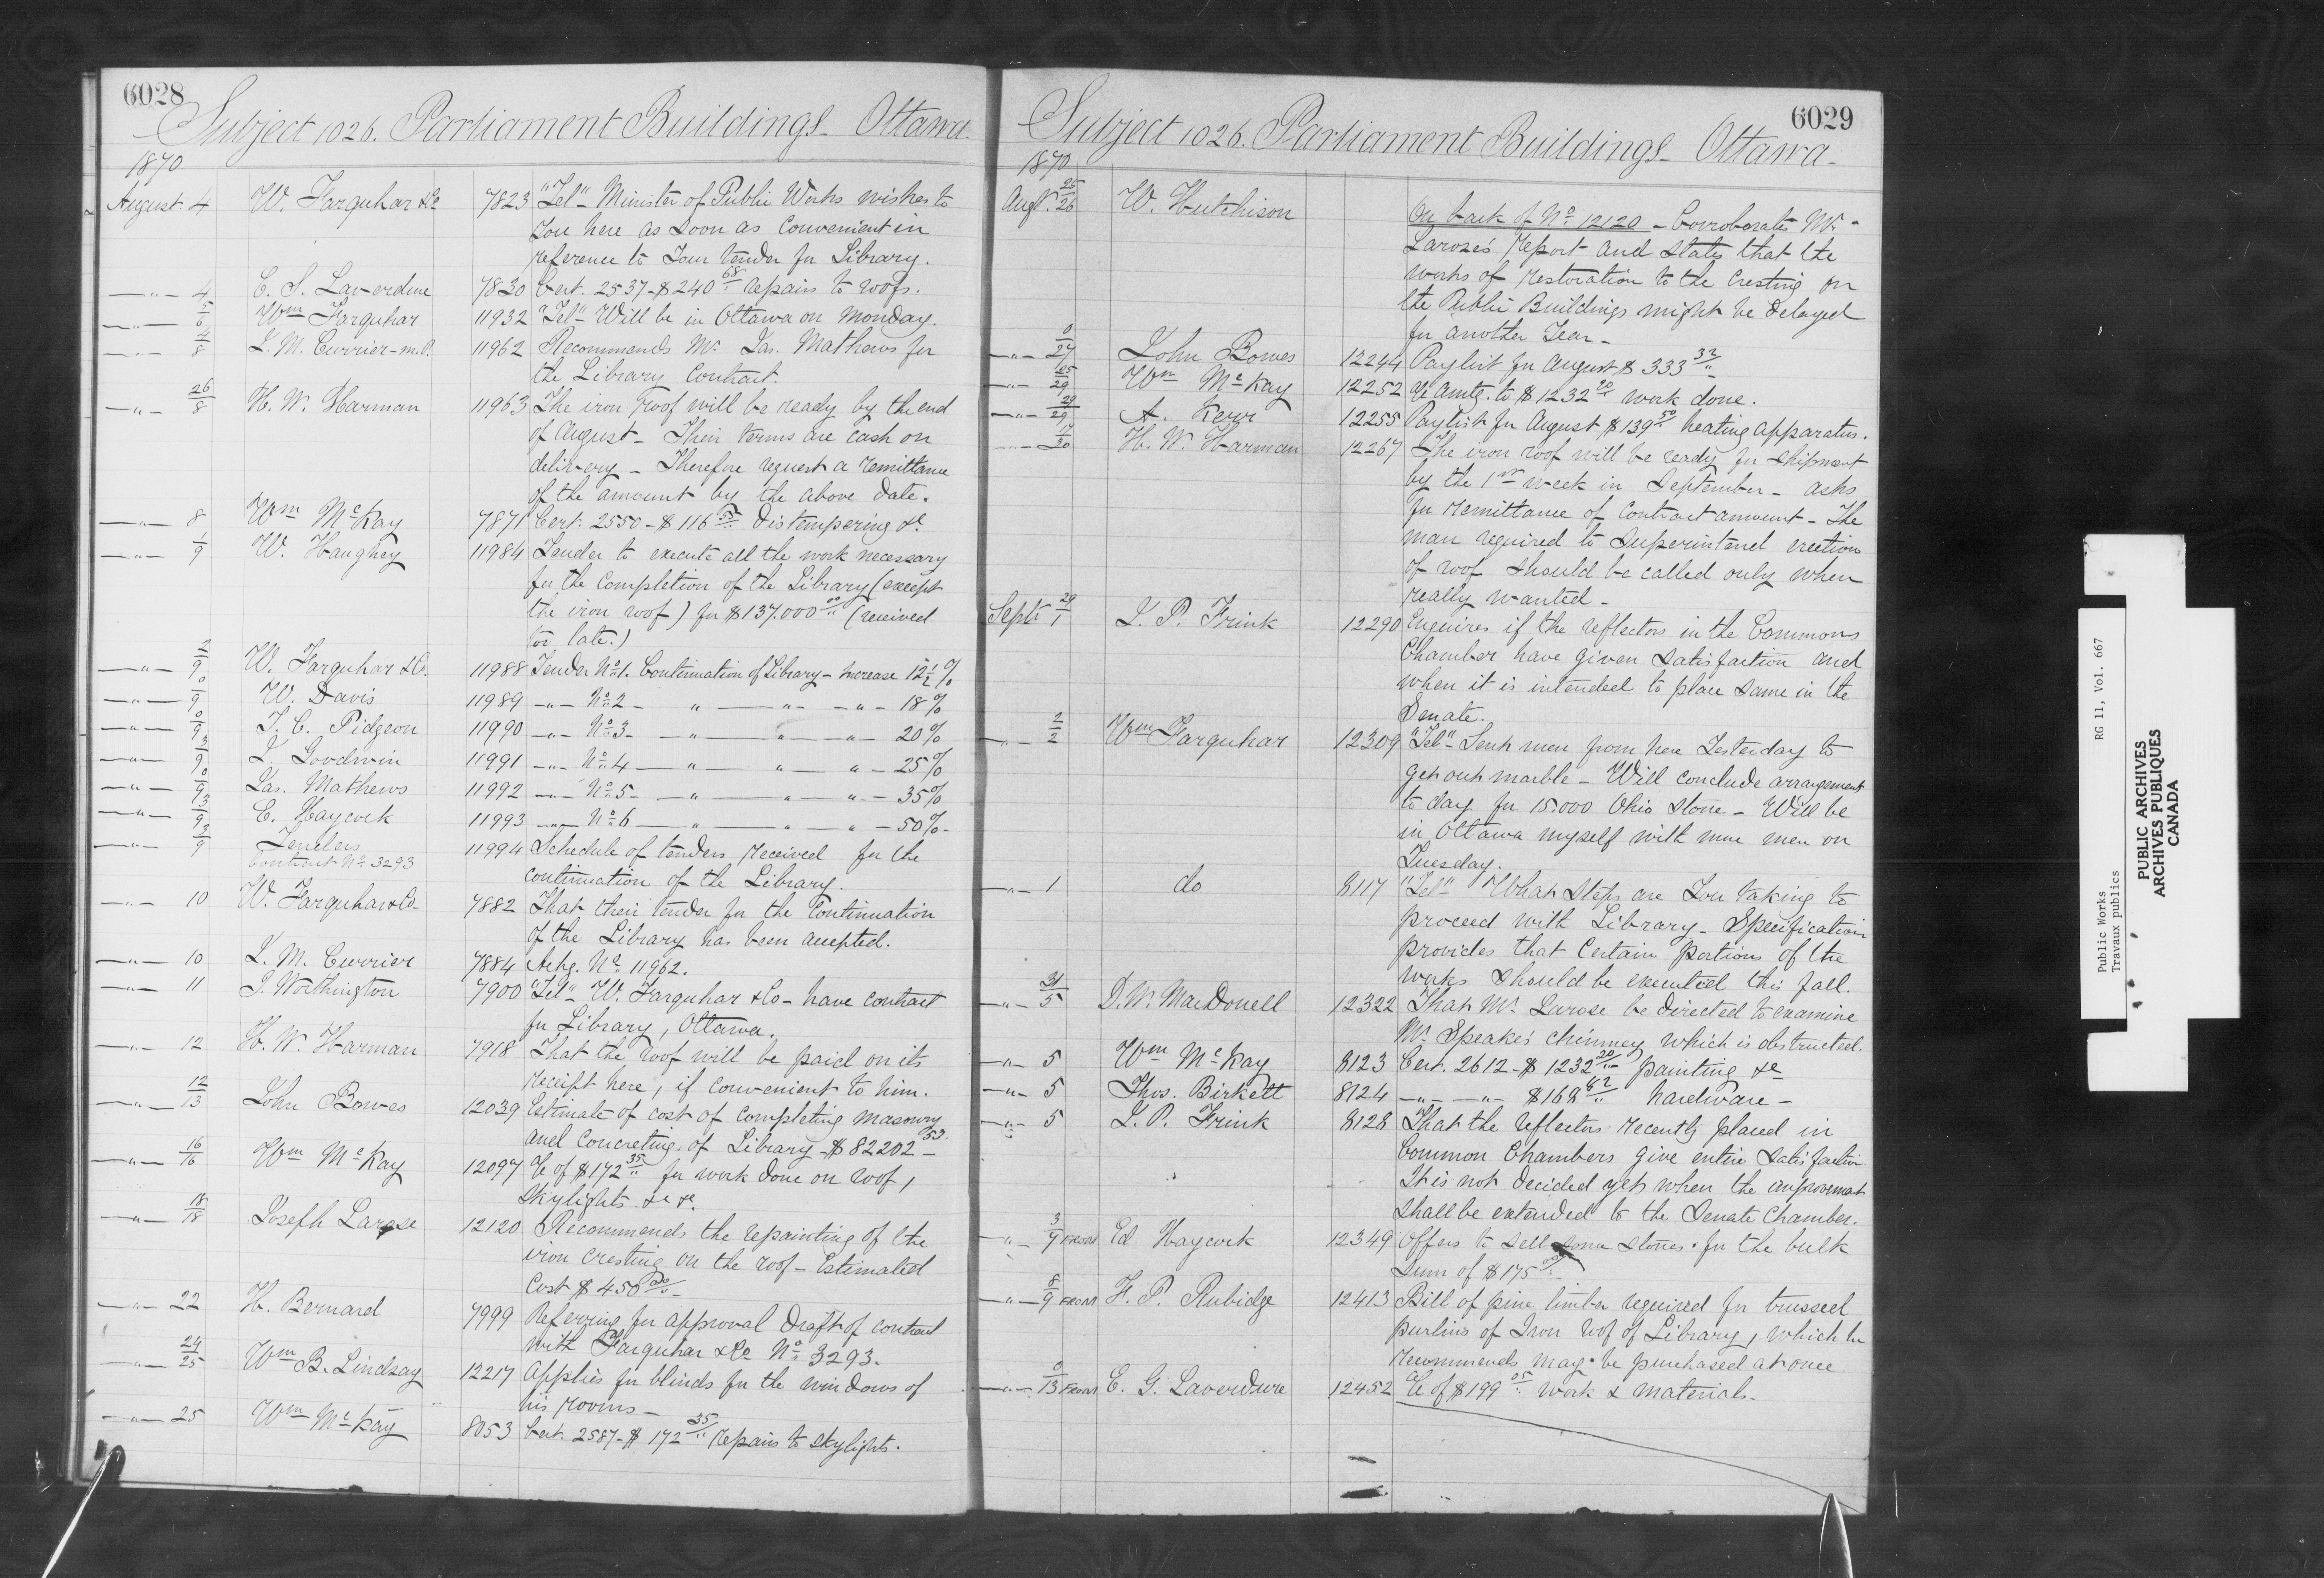 6028
Subject 1026. Parliament Buildings - Ottawa
1870
August 4 W. Farquhar & Co 7823 "Tel" - Minister of Public Works wishes to
you here as soon as convenient in
reference to your tender for Library.
-"- 4 C. S. Laverdure 7830 Cert. 2537 - $240 68/" repairs to roofs.
-"- 5/6 Wm Farquhar 11932 "Tel" - Will be in Ottawa on Monday.
-"- 4/8 J. M. Currier - M.P. 11962 Recommends Mr. Jas. Mathews for
the Library Contract.
-"- 26/8 H. W. Harman 11963 The iron roof will be ready by the end
of August - Their terms are cash on
delivery - Therefore request a remittance
of the amount by the above date.
-"- 8 Wm McKay 7871 Cert. 2550 - $116 Distempering &c
-"- 1/9 W. Haughey 11984 Tender to execute all the work necessary
for the completion of the Library (except
the iron roof) for $137.000 00/" (received
too late.)
-"- 2/9 W. Farquhar & Co. 11988 Tender No 1. Continuation of Library - Increase 12 1/2 %
-"- 0/9 W. Davis 11989 -"- No 2 - " -"- -"- 18%
-"- 0/9 T. C. Pidgeon 11990 -"- No 3 - -"- " -"- 20%
-"- 3/9 J. Goodwin 11991 -"- No 4 -"- " " - 25%
-"- 0/9 Jas. Mathews 11992 -"- No 5 - -"- " -"- 35%
-"- 13/9 E. Haycock 11993 -"- No 6 -"- " -"- 50% -
-"- 3/9 Tenders 11994 Schedule of tenders received for the
Contract No 3293
continuation of the Library.
-"- 10 W. Farquhar & Co - 7882 That their tender for the Continuation
of the Library has been accepted.
-"- 10 J. M. Currier 7884 Ackg. No 11962.
-"- 11 J. Worthington 7900 "Tel" - W. Farquhar & Co - have contract
for Library, Ottawa.
-"- 12 H. W. Harman 7918 That the roof will be paid on its
receipt here, if convenient to him.
-"- 12/13 John Bowes 12039 Estimate of cost of completing masonry
and concreting of Library - $82202 53 -
-"- 16/16 Wm McKay 12097 a/c of $172 35/" for work done on roof,
skylights &c &c.
-"- 18/18 Joseph Larose 12120 Recommends the repainting of the
iron cresting on the roof - Estimated
Cost $450 00/" -
-"- 22 H. Bernard 7999 Referring for approval Draft of contract
with Farquhar & Co No 3293.
-"- 24/25 Wm B. Lindsay 12217 Applies for blinds for the windows of
his rooms -
-"- 25 Wm McKay 8053 Cert. 2587 - $172 35/" repairs to skylights.
6029
Subject 1026. Parliament Buildings - Ottawa -
1870
Augt. 25/26 W. Hutchison
On back of No 12120 - Corroborates Mr.
Larose's report and states that the
works of restoration to the cresting on
the Public Buildings might be delayed
for another year -
-"- 0/27 John Bowes 12244 Paylist for August $333 32/"
-"- 25/29 Wm McKay 12252 a/c amtg. to $1232 20/" work done.
-"- 29/29 A. Kerr 12255 Paylist for August $139 50/" heating apparatus.
-"- 17/30 H. W. Harman 12267 The iron roof will be ready for shipment
by the 1st week in September - asks
for remittance of contract amount - The
man required to superintend erection
of roof should be called only when
really wanted -
Septr 29/1 J. P. Frink 12290 Enquires if the reflectors in the Commons
Chamber have given satisfaction and
when it is intended to place same in the
Senate.
-"- 2/2 Wm Farquhar 12309 "Tel" - Sent men from here yesterday to
get out marble - Will conclude arrangement
to day for 15.000 Ohio stone - Will be
in Ottawa myself with more men on
Tuesday.
-"- 1 do 8117 "Tel" What steps are you taking to
proceed with Library - Specification
provides that certain portions of the
works should be executed this fall.
-"- 31/5 D. W. MacDonell 12322 That Mr. Larose be directed to examine
Mr. Speaker's chimney which is obstructed.
-"- 5 Wm McKay 8123 Cert. 2612 - $1232 20/" painting &c
-"- 5 Thos. Birkett 8124 -"- -"- $168 62/" hardware -
-"- 5 J. P. Frink 8128 That the reflectors recently placed in
Common Chambers give entire satisfaction
It is not decided yet when the improvement
shall be extended to the Senate Chamber.
-"- 3/9 FROM Ed Haycock 12349 Offers to sell some stones for the bulk
sum of $175 00/"
-"- 8/9 FROM F. P. Rubidge 12413 Bill of pine timber required for trussed
purlins of Iron roof of Library, which he
recommends may be purchased at once
-"- 0/13 FROM E. G. Laverdure 12452 a/c of $199 05/" work & materials -
Public Works RG 11, Vol. 667
Travaux publics
PUBLIC ARCHIVES
ARCHIVES PUBLIQUES
CANADA